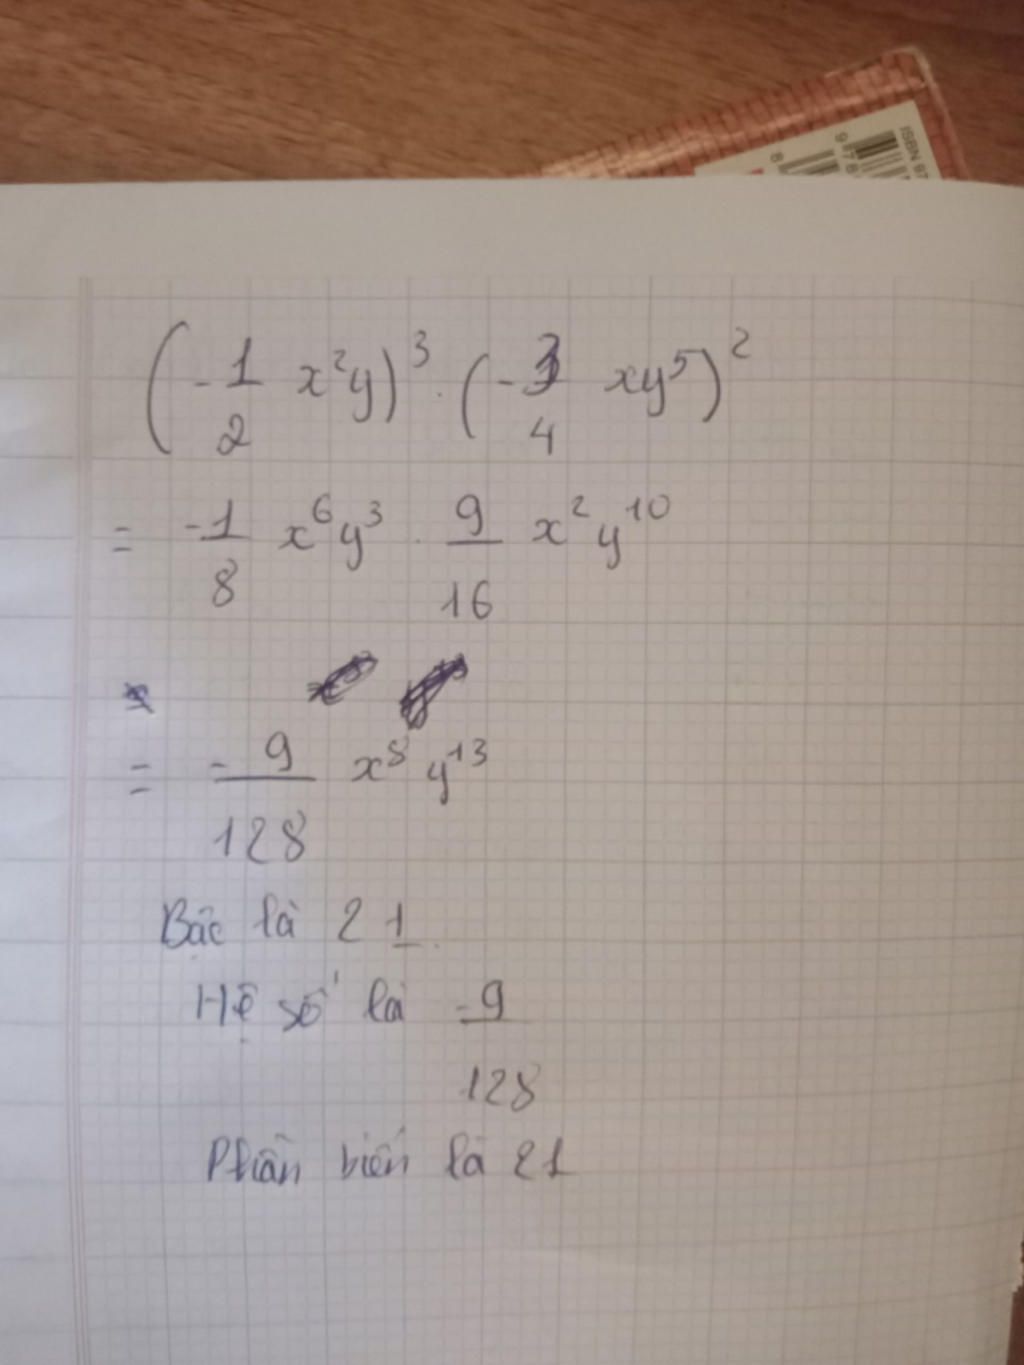 ISBN 97
9 78
8
(-1/2 x²y)³ . (-3/4 xy⁵)²
= -1/8 x⁶y³ . 9/16 x²y¹⁰
= -9/128 x⁸y¹³
Bậc là 21
Hệ số là -9/128
Phần biến là 21